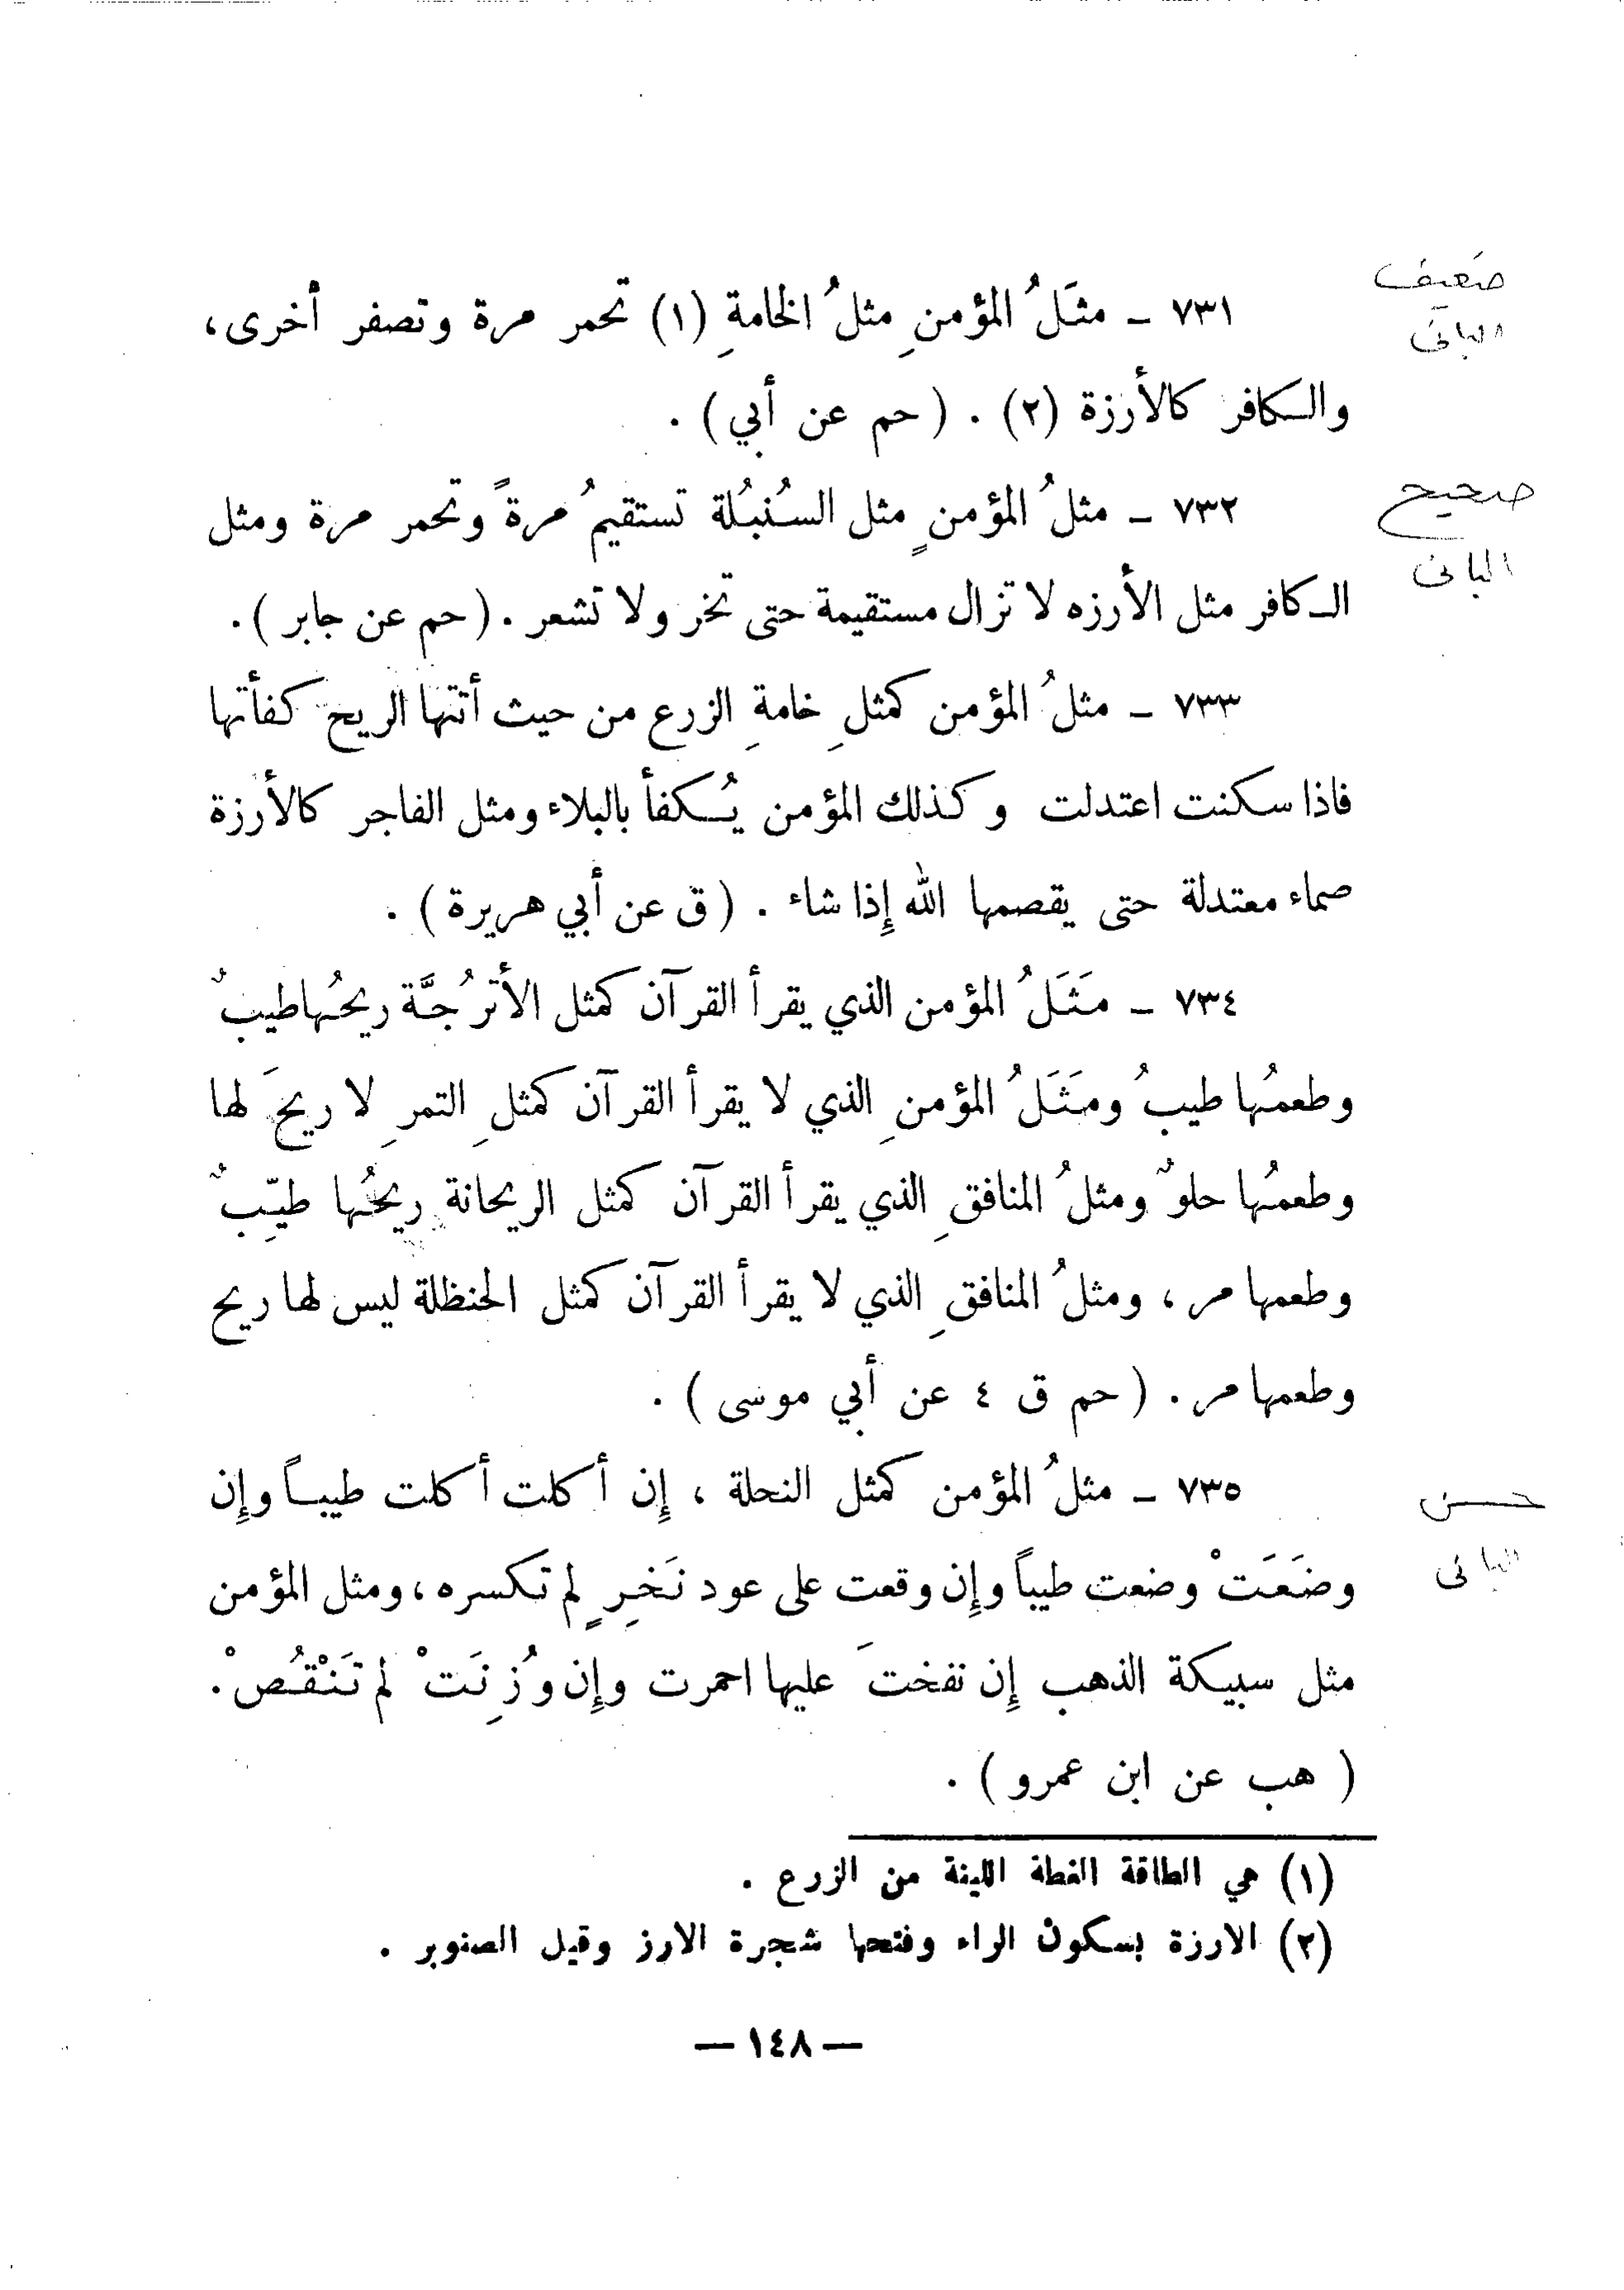 ضعيف
البانى
٧٣١ ـ مثَلُ المؤمنِ مثلُ الخامةِ (١) تحمر مرة وتصفر أخرى،
والكافر كالأرزة (٢) . ( حم عن أبي ) .
صحيح
البانى
٧٣٢ ـ مثلُ المؤمنِ مثل السُنبُلة تستقيمُ مرةً وتحمر مرة ومثل
الكافر مثل الأرزه لا تزال مستقيمة حتى تخر ولا تشعر . ( حم عن جابر ) .
٧٣٣ ـ مثلُ المؤمن كمثلِ خامةِ الزرع من حيث أتتها الريح كفأتها
فاذا سكنت اعتدلت وكذلك المؤمن يُكفأ بالبلاء ومثل الفاجر كالأرزة
صماء معتدلة حتى يقصمها الله إذا شاء . ( ق عن أبي هريرة ) .
٧٣٤ ـ مَثَلُ المؤمن الذي يقرأ القرآن كمثل الأترُجَّة ريحُها طيبٌ
وطعمُها طيبُ ومَثَلُ المؤمنِ الذي لا يقرأ القرآن كمثلِ التمرِ لا ريحَ لها
وطعمُها حلوٌ ومثلُ المنافقِ الذي يقرأ القرآن كمثل الريحانة ريحُها طيّبٌ
وطعمها مر ، ومثلُ المنافقِ الذي لا يقرأ القرآن كمثل الحنظلة ليس لها ريح
وطعمها مر . ( حم ق ٤ عن أبي موسى ) .
حسن
البانى
٧٣٥ ـ مثلُ المؤمن كمثل النحلة ، إن أكلت أكلت طيباً وإن
وضَعَتْ وضعت طيباً وإن وقعت على عود نَخِرٍ لم تكسره ، ومثل المؤمن
مثل سبيكة الذهب إن نفختَ عليها احمرت وإن وُزِنَتْ لم تَنْقُصْ .
( هب عن ابن عمرو ) .
(١) هي الطاقة الغطة اللينة من الزرع .
(٢) الارزة بسكون الراء وفتحها شجرة الارز وقيل الصنوبر .
— ١٤٨ —